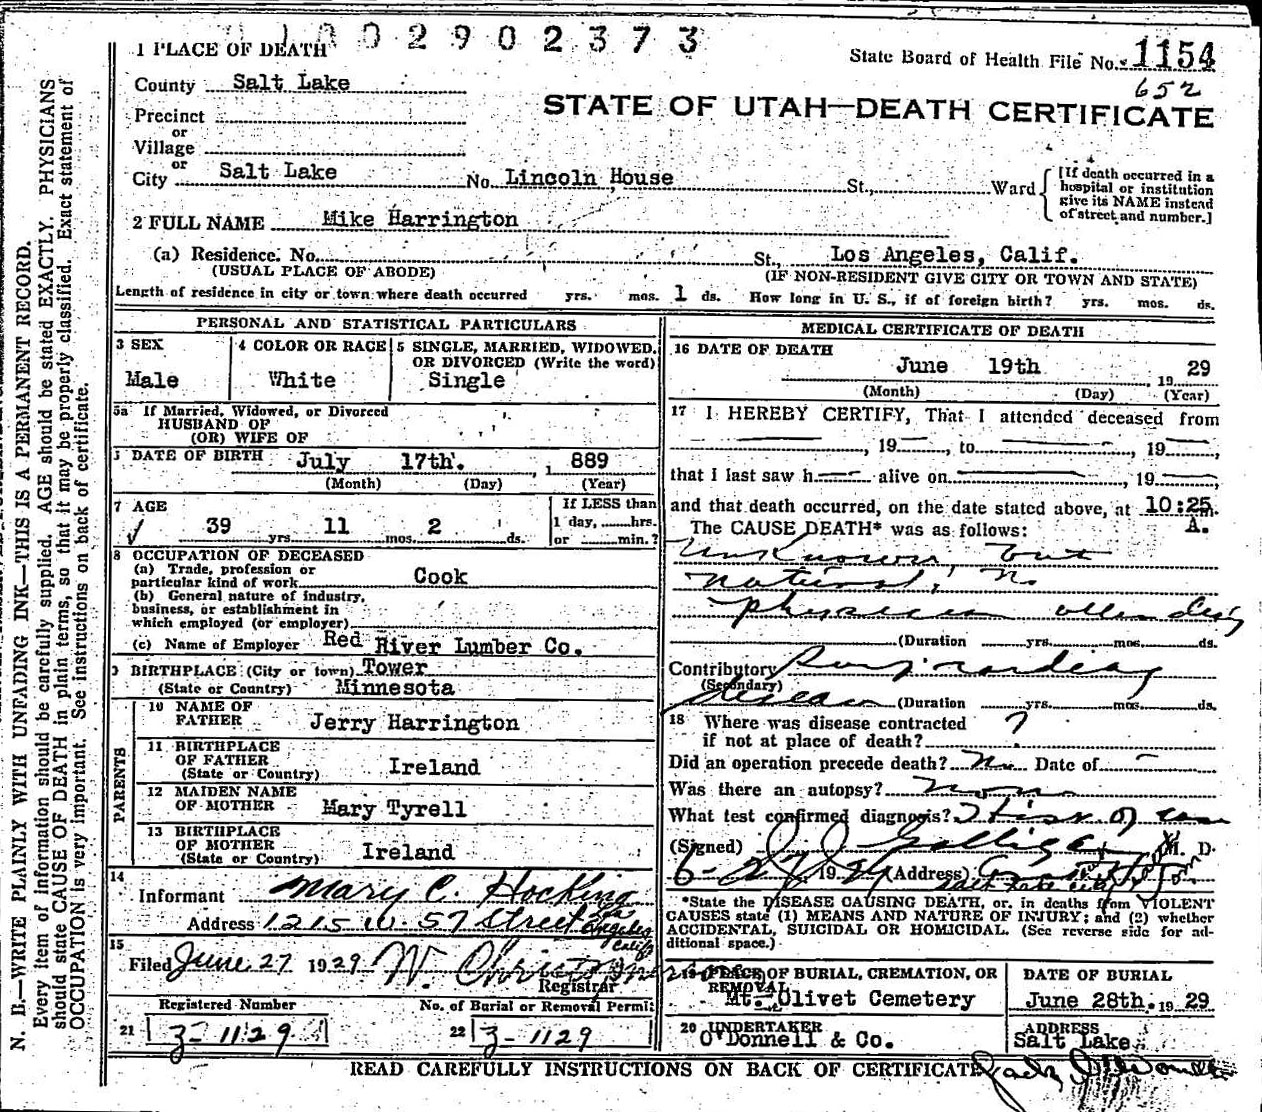 1002902373
1 PLACE OF DEATH
State Board of Health File No. 1154
County Salt Lake
652
STATE OF UTAH—DEATH CERTIFICATE
Precinct
or
Village
or
City Salt Lake No. Lincoln House St., Ward
[If death occurred in a
hospital or institution
give its NAME instead
of street and number.]
2 FULL NAME Mike Harrington
(a) Residence. No. St., Los Angeles, Calif.
(USUAL PLACE OF ABODE) (IF NON-RESIDENT GIVE CITY OR TOWN AND STATE)
Length of residence in city or town where death occurred yrs. mos. 1 ds. How long in U. S., if of foreign birth? yrs. mos. ds.
PERSONAL AND STATISTICAL PARTICULARS
3 SEX
Male
4 COLOR OR RACE
White
5 SINGLE, MARRIED, WIDOWED,
OR DIVORCED (Write the word)
Single
5a If Married, Widowed, or Divorced
HUSBAND OF
(OR) WIFE OF
DATE OF BIRTH July 17th. , 1889
(Month) (Day) (Year)
7 AGE
39 yrs. 11 mos. 2 ds.
If LESS than
1 day, hrs.
or min.?
8 OCCUPATION OF DECEASED
(a) Trade, profession or
particular kind of work Cook
(b) General nature of industry,
business, or establishment in
which employed (or employer)
(c) Name of Employer Red River Lumber Co.
9 BIRTHPLACE (City or town) Tower
(State or Country) Minnesota
PARENTS
10 NAME OF
FATHER Jerry Harrington
11 BIRTHPLACE
OF FATHER
(State or Country) Ireland
12 MAIDEN NAME
OF MOTHER Mary Tyrell
13 BIRTHPLACE
OF MOTHER
(State or Country) Ireland
14
Informant Mary C. Hocking
Address 1215 W. 57 Street Los
Angeles
Calif
15
Filed June 27 1929 W.
Registrar
Registered Number
21 3-1129
No. of Burial or Removal Permit
22 3-1129
MEDICAL CERTIFICATE OF DEATH
16 DATE OF DEATH
June 19th , 19 29
(Month) (Day) (Year)
17 I HEREBY CERTIFY, That I attended deceased from
, 19 , to , 19 ,
that I last saw h alive on , 19 ,
and that death occurred, on the date stated above, at 10:25 m.
A.
The CAUSE DEATH* was as follows:
Unknown but
natural, No
physician attending
(Duration yrs. mos. ds.
Contributory
(Secondary)
disease (Duration yrs. mos. ds.
18 Where was disease contracted
if not at place of death? ?
Did an operation precede death? No Date of —
Was there an autopsy? None
What test confirmed diagnosis? of
(Signed) J J Galligan M. D.
6-27, 1929 (Address)
Salt Lake City
*State the DISEASE CAUSING DEATH, or, in deaths from VIOLENT
CAUSES state (1) MEANS AND NATURE OF INJURY; and (2) whether
ACCIDENTAL, SUICIDAL OR HOMICIDAL. (See reverse side for ad-
ditional space.)
19 PLACE OF BURIAL, CREMATION, OR
REMOVAL
Mt. Olivet Cemetery
DATE OF BURIAL
June 28th. 19 29
20 UNDERTAKER
O'Donnell & Co.
ADDRESS
Salt Lake.
READ CAREFULLY INSTRUCTIONS ON BACK OF CERTIFICATE
N. B.—WRITE PLAINLY WITH UNFADING INK—THIS IS A PERMANENT RECORD.
Every item of information should be carefully supplied. AGE should be stated EXACTLY. PHYSICIANS
should state CAUSE OF DEATH in plain terms, so that it may be properly classified. Exact statement of
OCCUPATION is very important. See instructions on back of certificate.